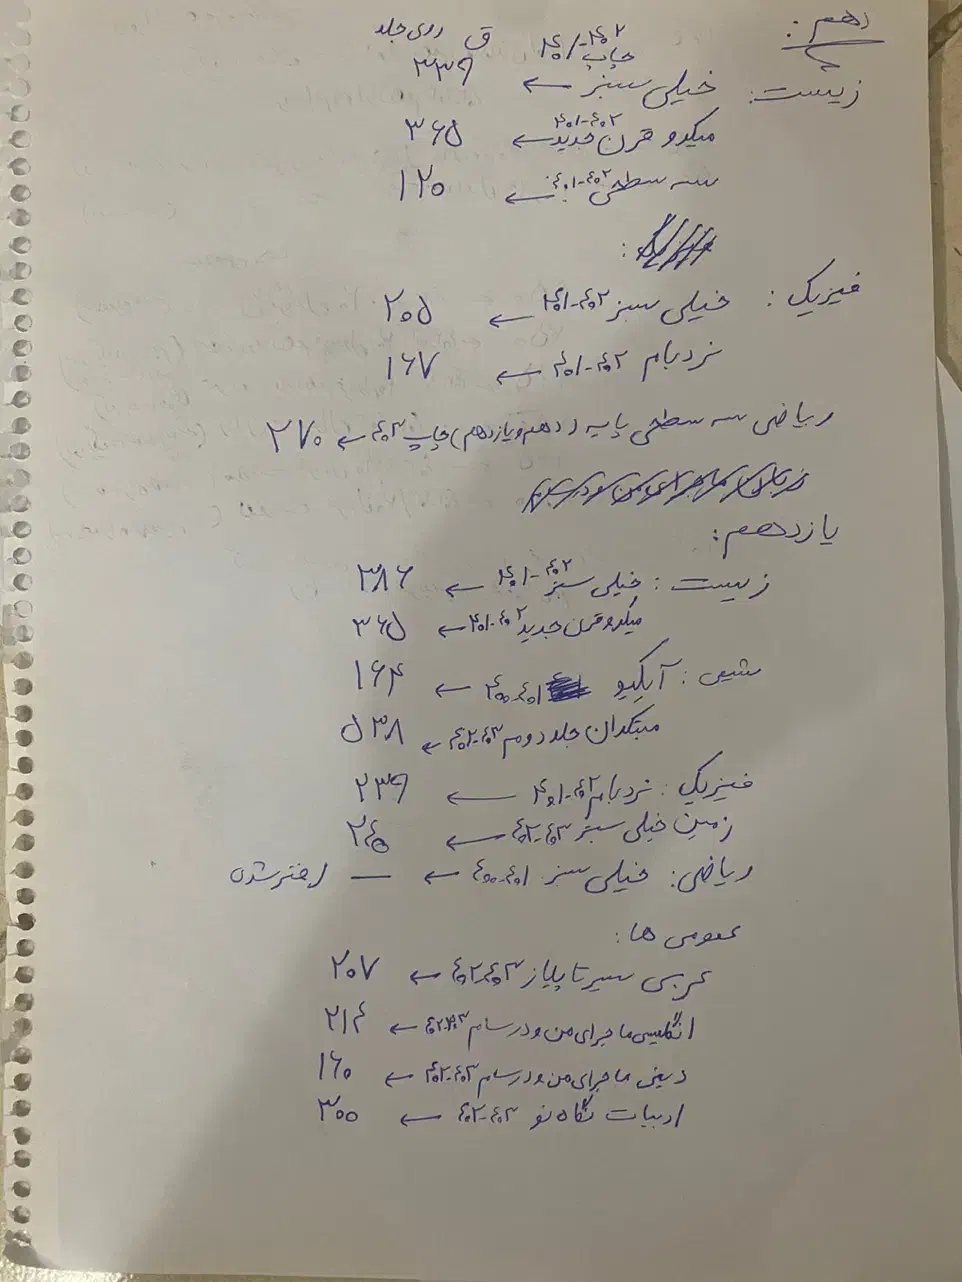 دهم:
چاپ ۴۰۱-۴۰۲ ق روی جلد
زیست: خیلی سبز ← ۳۳۹
میکرو قرن جدید ۴۰۱-۴۰۲ ← ۳۶۵
سه سطحی ۴۰۱-۴۰۲ ← ۱۲۰
فیزیک: خیلی سبز ۴۰۱-۴۰۲ ← ۲۰۵
نردبام ۴۰۱-۴۰۲ ← ۱۶۷
ریاضی سه سطحی پایه (دهم و یازدهم) چاپ ۴۰۳ ← ۲۷۰
یازدهم:
زیست: خیلی سبز ۴۰۱-۴۰۲ ← ۳۸۶
میکرو قرن جدید ۴۰۱-۴۰۲ ← ۳۶۵
شیمی: آیکیو ۴۰۰-۴۰۱ ← ۱۶۴
مبتکران جلد دوم ۴۰۲-۴۰۳ ← ۵۳۸
فیزیک: نردبام ۴۰۱-۴۰۲ ← ۲۳۹
زمین خیلی سبز ۴۰۲-۴۰۳ ← ۲۴۵
ریاضی: خیلی سبز ۴۰۰-۴۰۱ ← —
عمومی ها:
عربی سیر تا پیاز ۴۰۲-۴۰۳ ← ۲۰۷
انگلیسی ماجرای من و درسام ۴۰۲-۴۰۳ ← ۲۱۴
دینی ماجرای من و درسام ۴۰۲-۴۰۳ ← ۱۶۰
ادبیات نگاه نو ۴۰۲-۴۰۳ ← ۳۰۰